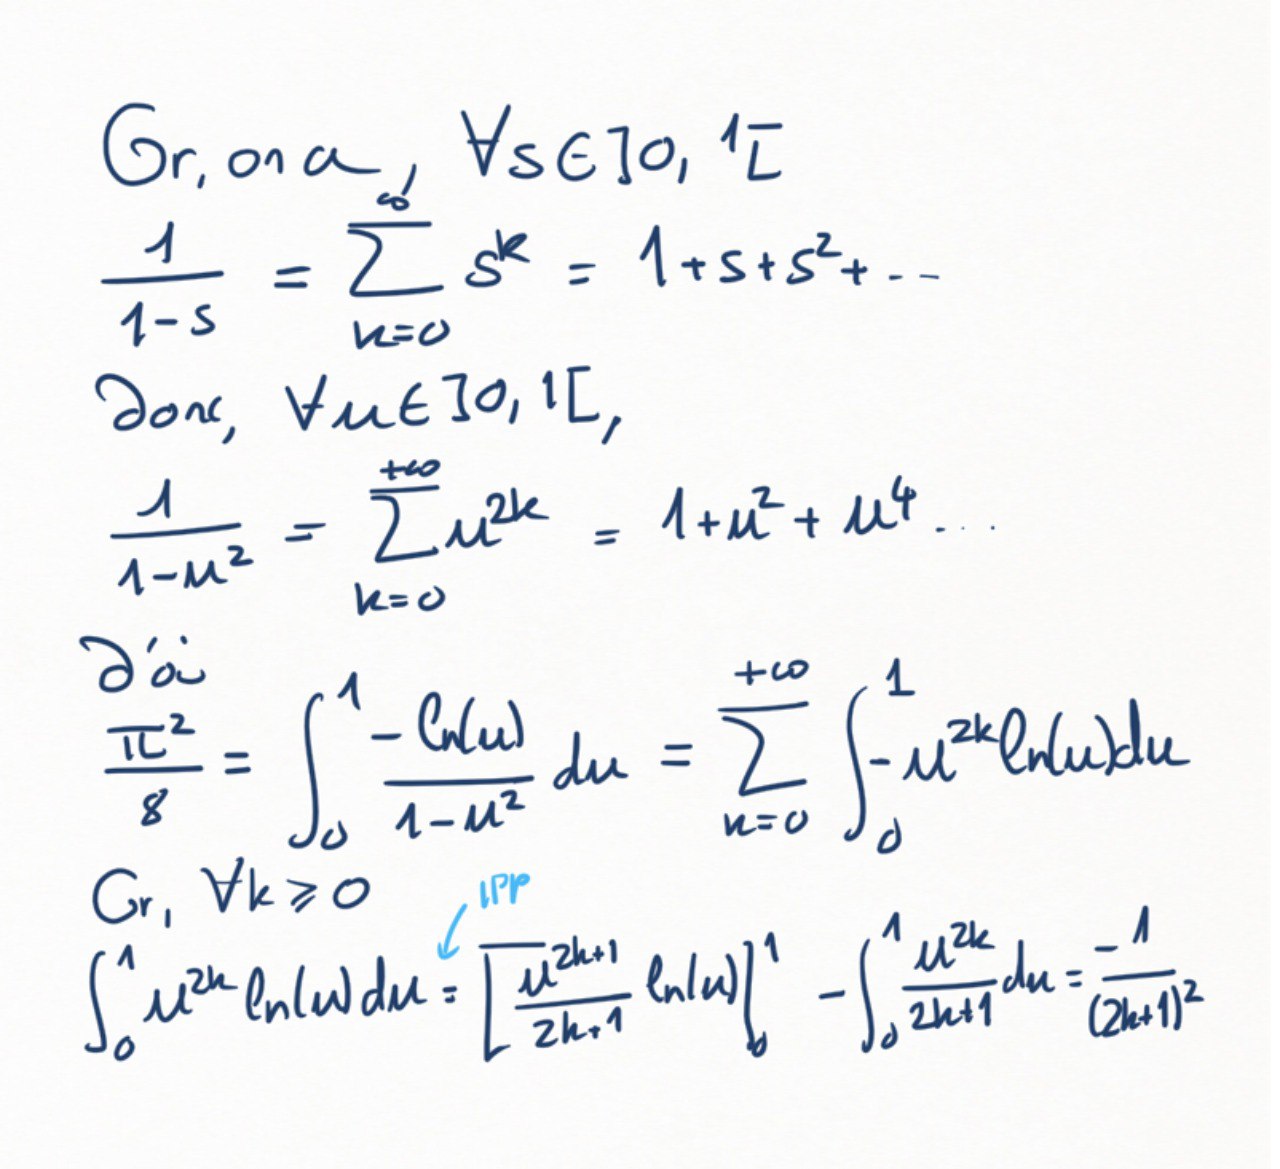 Or, on a, ∀s∈]0, 1[
1/(1-s) = ∑_{k=0}^{∞} s^k = 1+s+s²+...
Donc, ∀u∈]0, 1[,
1/(1-u²) = ∑_{k=0}^{+∞} u^{2k} = 1+u²+u⁴...
D'où
π²/8 = ∫_0^1 -ln(u)/(1-u²) du = ∑_{k=0}^{+∞} ∫_0^1 -u^{2k}ln(u)du
Or, ∀k⩾0
IPP
∫_0^1 u^{2k}ln(u)du = [u^{2k+1}/(2k+1) ln(u)]_0^1 - ∫_0^1 u^{2k}/(2k+1) du = -1/(2k+1)²